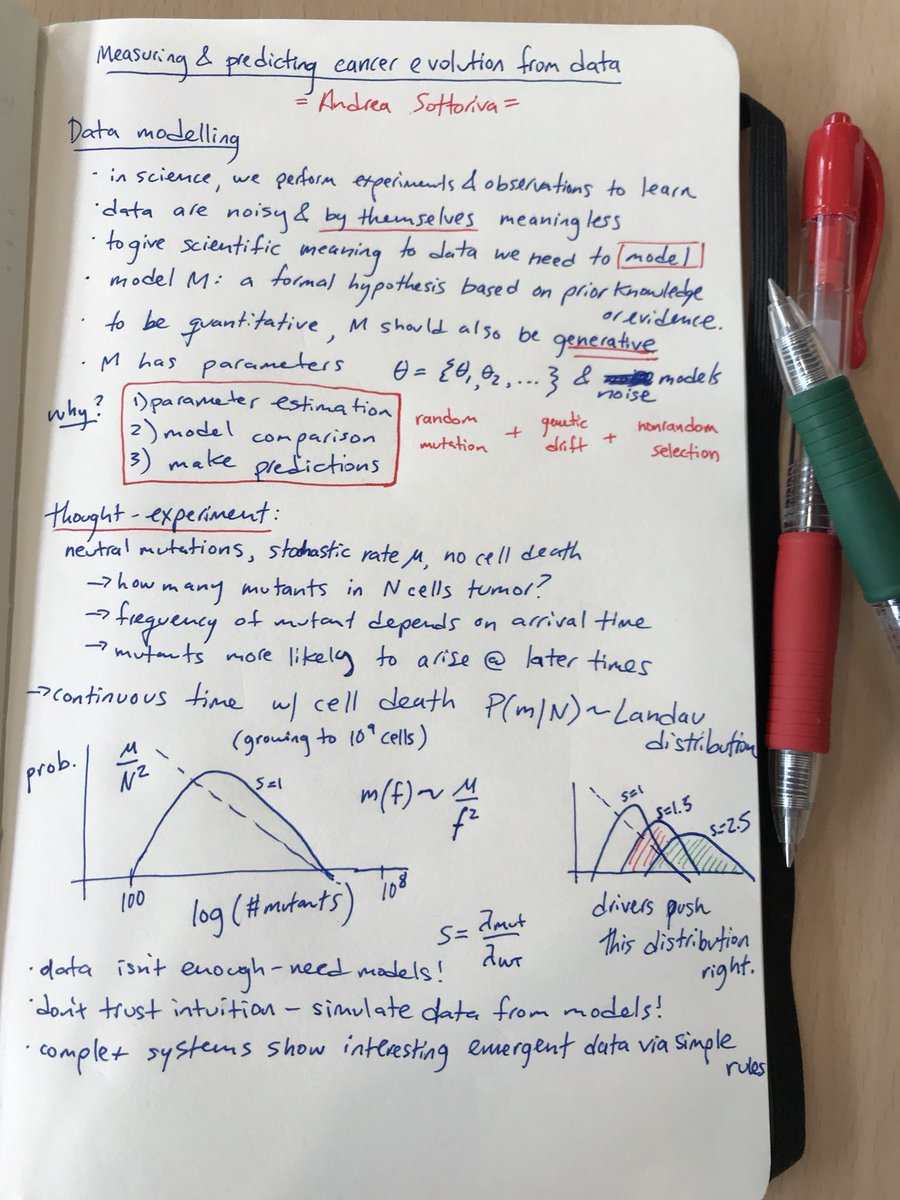 Measuring & predicting cancer evolution from data
= Andrea Sottoriva =
Data modelling
· in science, we perform experiments & observations to learn
· data are noisy & by themselves meaningless
· to give scientific meaning to data we need to model
· model M: a formal hypothesis based on prior knowledge
or evidence.
· to be quantitative, M should also be generative
· M has parameters θ = {θ1, θ2, ...} & models
noise
why?
1) parameter estimation
2) model comparison
3) make predictions
random
mutation
+
genetic
drift
+
nonrandom
selection
thought-experiment:
neutral mutations, stochastic rate μ, no cell death
→ how many mutants in N cells tumor?
→ frequency of mutant depends on arrival time
→ mutants more likely to arise @ later times
→ continuous time w/ cell death P(m|N) ~ Landau
distribution
(growing to 10⁹ cells)
prob.
μ/N²
s=1
100
10⁸
log(#mutants)
m(f) ~ μ/f²
s=1
s=1.5
s=2.5
drivers push
this distribution
right.
S = λmut/λWT
· data isn't enough - need models!
· don't trust intuition - simulate data from models!
· complex systems show interesting emergent data via simple
rules